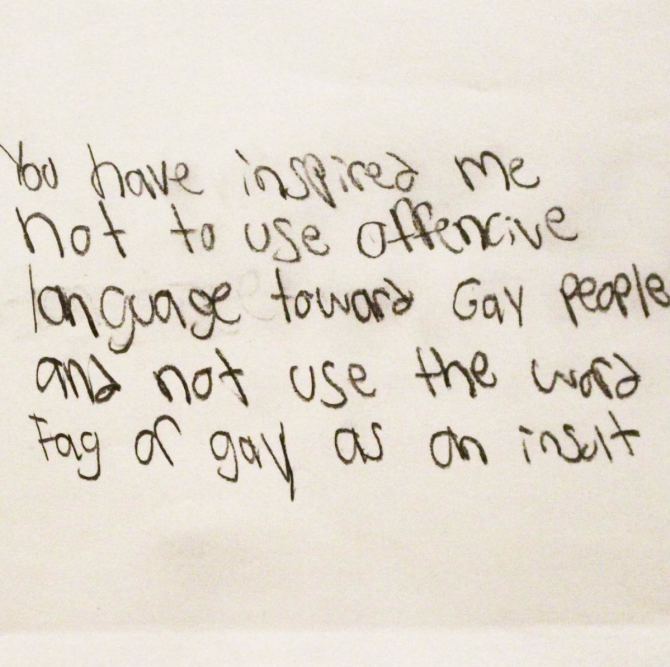 You have inspired me
not to use offencive
language toward Gay people
and not use the word
Fag or gay as an insult